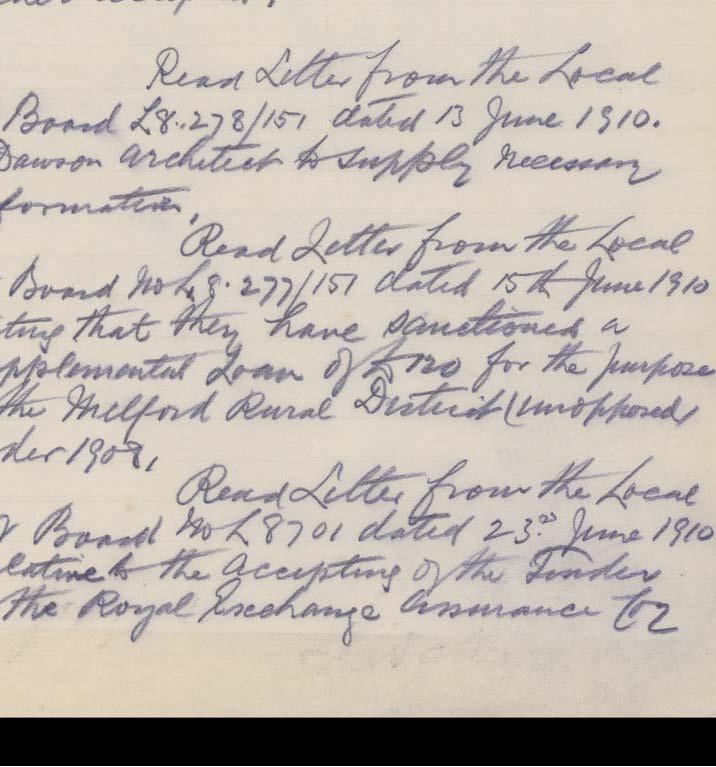 Read Letter from the Local
Board L8.278/151 dated 13 June 1910.
Dawson Architect to supply necessary
formation,
Read Letter from the Local
Board No L.8.277/151 dated 15th June 1910
ting that they have sanctioned a
pplemental Loan of £120 for the purpose
the Melford Rural District (unopposed
der 1908,
Read Letter from the Local
Board No L8701 dated 23rd June 1910
lative to the accepting of the Tender
the Royal Exchange Assurance Coy